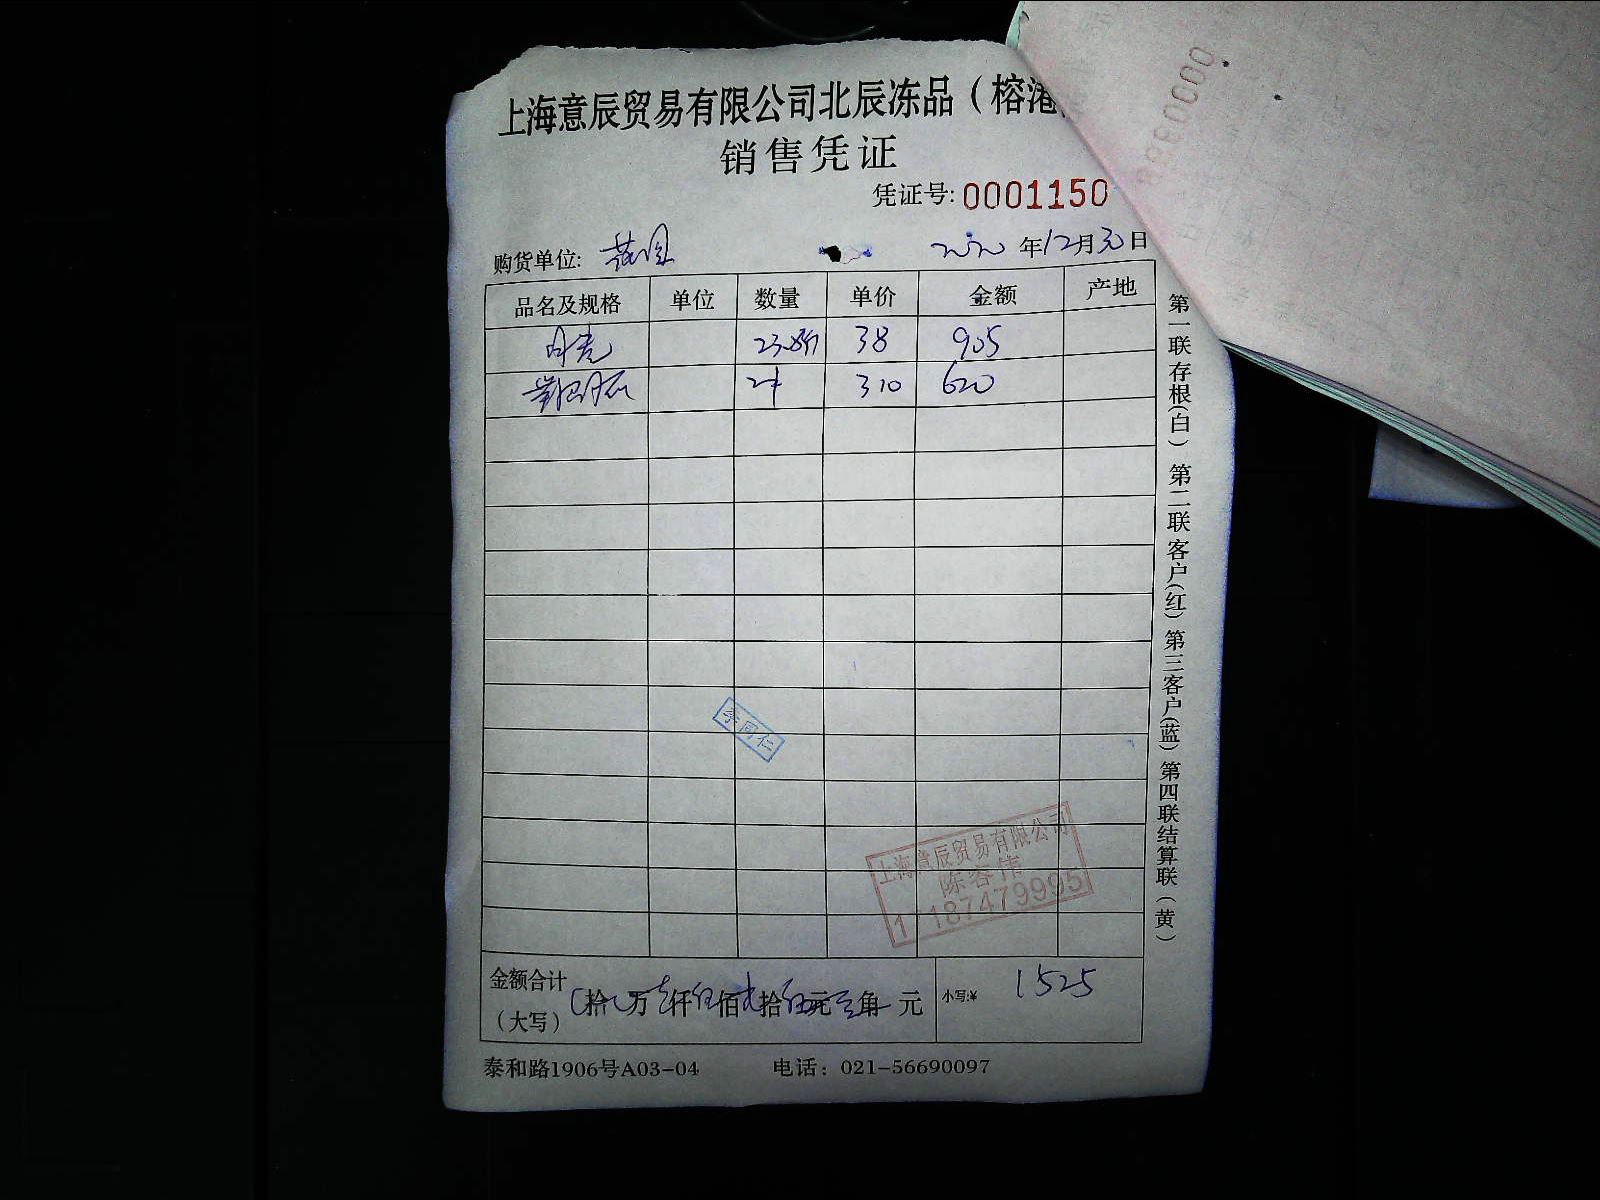 上海意辰贸易有限公司北辰冻品（榕港
销售凭证
凭证号: 0001150
购货单位:
2020年12月30日
品名及规格 单位 数量 单价 金额 产地
23.8斤 38 905
2件 310 620
李同仁
上海意辰贸易有限公司
陈容伟
187479995
金额合计
（大写）
拾 万壹仟伍佰贰拾伍元 角 元
小写:¥ 1525
泰和路1906号A03-04 电话：021-56690097
第一联存根(白) 第二联客户(红) 第三客户(蓝) 第四联结算联(黄)
0000880